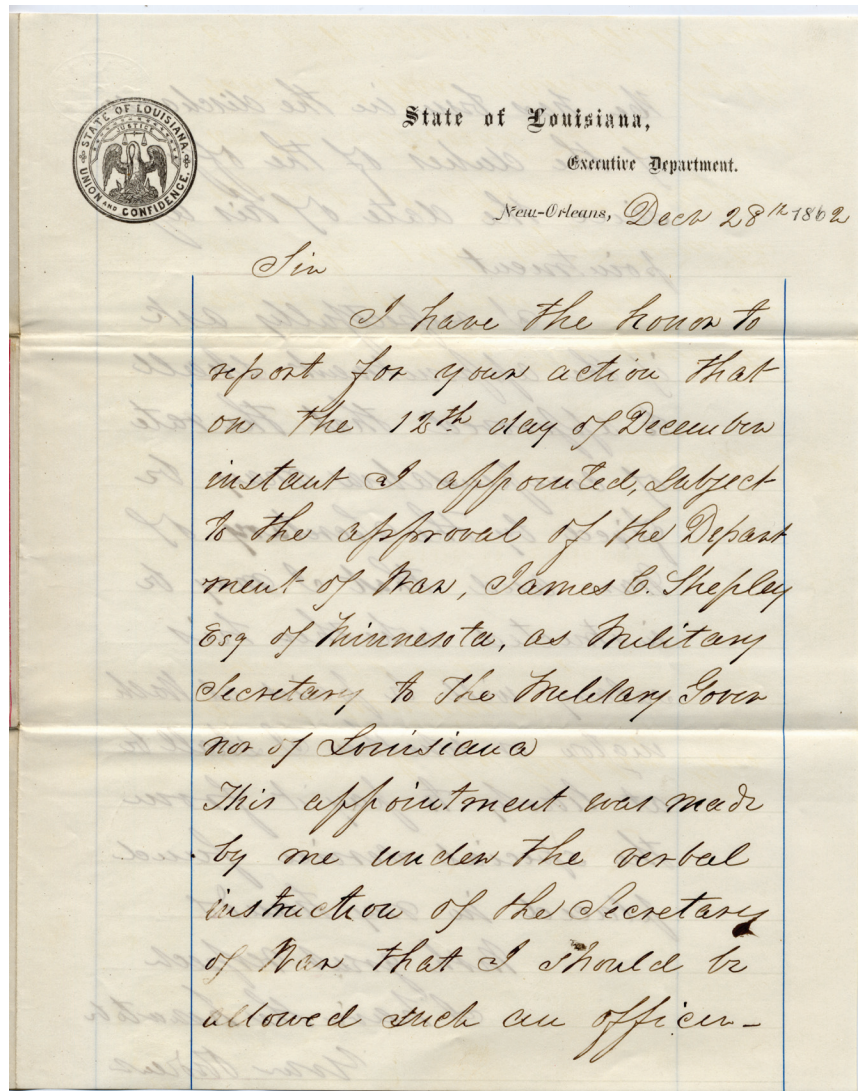 STATE OF LOUISIANA.
JUSTICE
UNION AND CONFIDENCE.
State of Louisiana,
Executive Department.
New-Orleans, Decr 28th 1862
Sir
I have the honor to
report for your action that
on the 12th day of December
instant I appointed, subject
to the approval of the Depart
ment of War, James C. Shepley
Esq of Minnesota, as Military
Secretary to the Military Gover
nor of Louisiana
This appointment was made
by me under the verbal
instruction of the Secretary
of War that I should be
allowed such an officer-